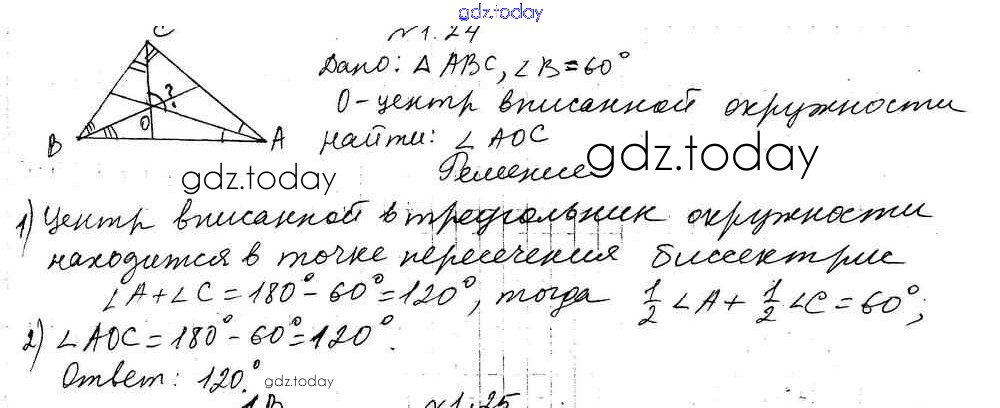 gdz.today
C
№1.24
Дано: △ ABC, ∠B = 60°
?
O - центр вписанной окружности
B O A
найти: ∠ AOC
gdz.today
Решение
gdz.today
1) Центр вписанной в треугольник окружности
находится в точке пересечения биссектрис
∠A + ∠C = 180° - 60° = 120°, тогда 1/2 ∠A + 1/2 ∠C = 60°;
2) ∠AOC = 180° - 60° = 120°.
Ответ: 120°.
gdz.today
№1.25